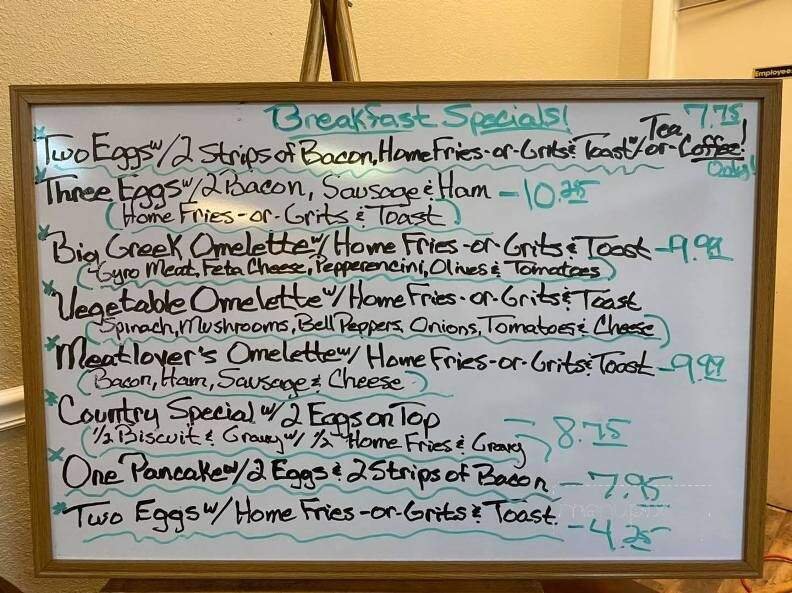 Employee
Breakfast Specials!
Two Eggs w/ 2 Strips of Bacon, Home Fries -or- Grits & Toast w/ Tea -or- Coffee! 7.75
Only!
Three Eggs w/ 2 Bacon, Sausage & Ham - 10.25
(Home Fries -or- Grits & Toast)
Big Greek Omelette w/ Home Fries -or- Grits & Toast - 9.99
(Gyro Meat, Feta Cheese, Pepperencini, Olives & Tomatoes)
Vegetable Omelette w/ Home Fries -or- Grits & Toast
(Spinach, Mushrooms, Bell Peppers, Onions, Tomatoes & Cheese)
Meatlover's Omelette w/ Home Fries -or- Grits & Toast - 9.99
(Bacon, Ham, Sausage & Cheese)
Country Special w/ 2 Eggs on Top - 8.75
(1/2 Biscuit & Gravy w/ 1/2 Home Fries & Gravy)
One Pancake w/ 2 Eggs & 2 Strips of Bacon - 7.95
Two Eggs w/ Home Fries -or- Grits & Toast. - 4.25